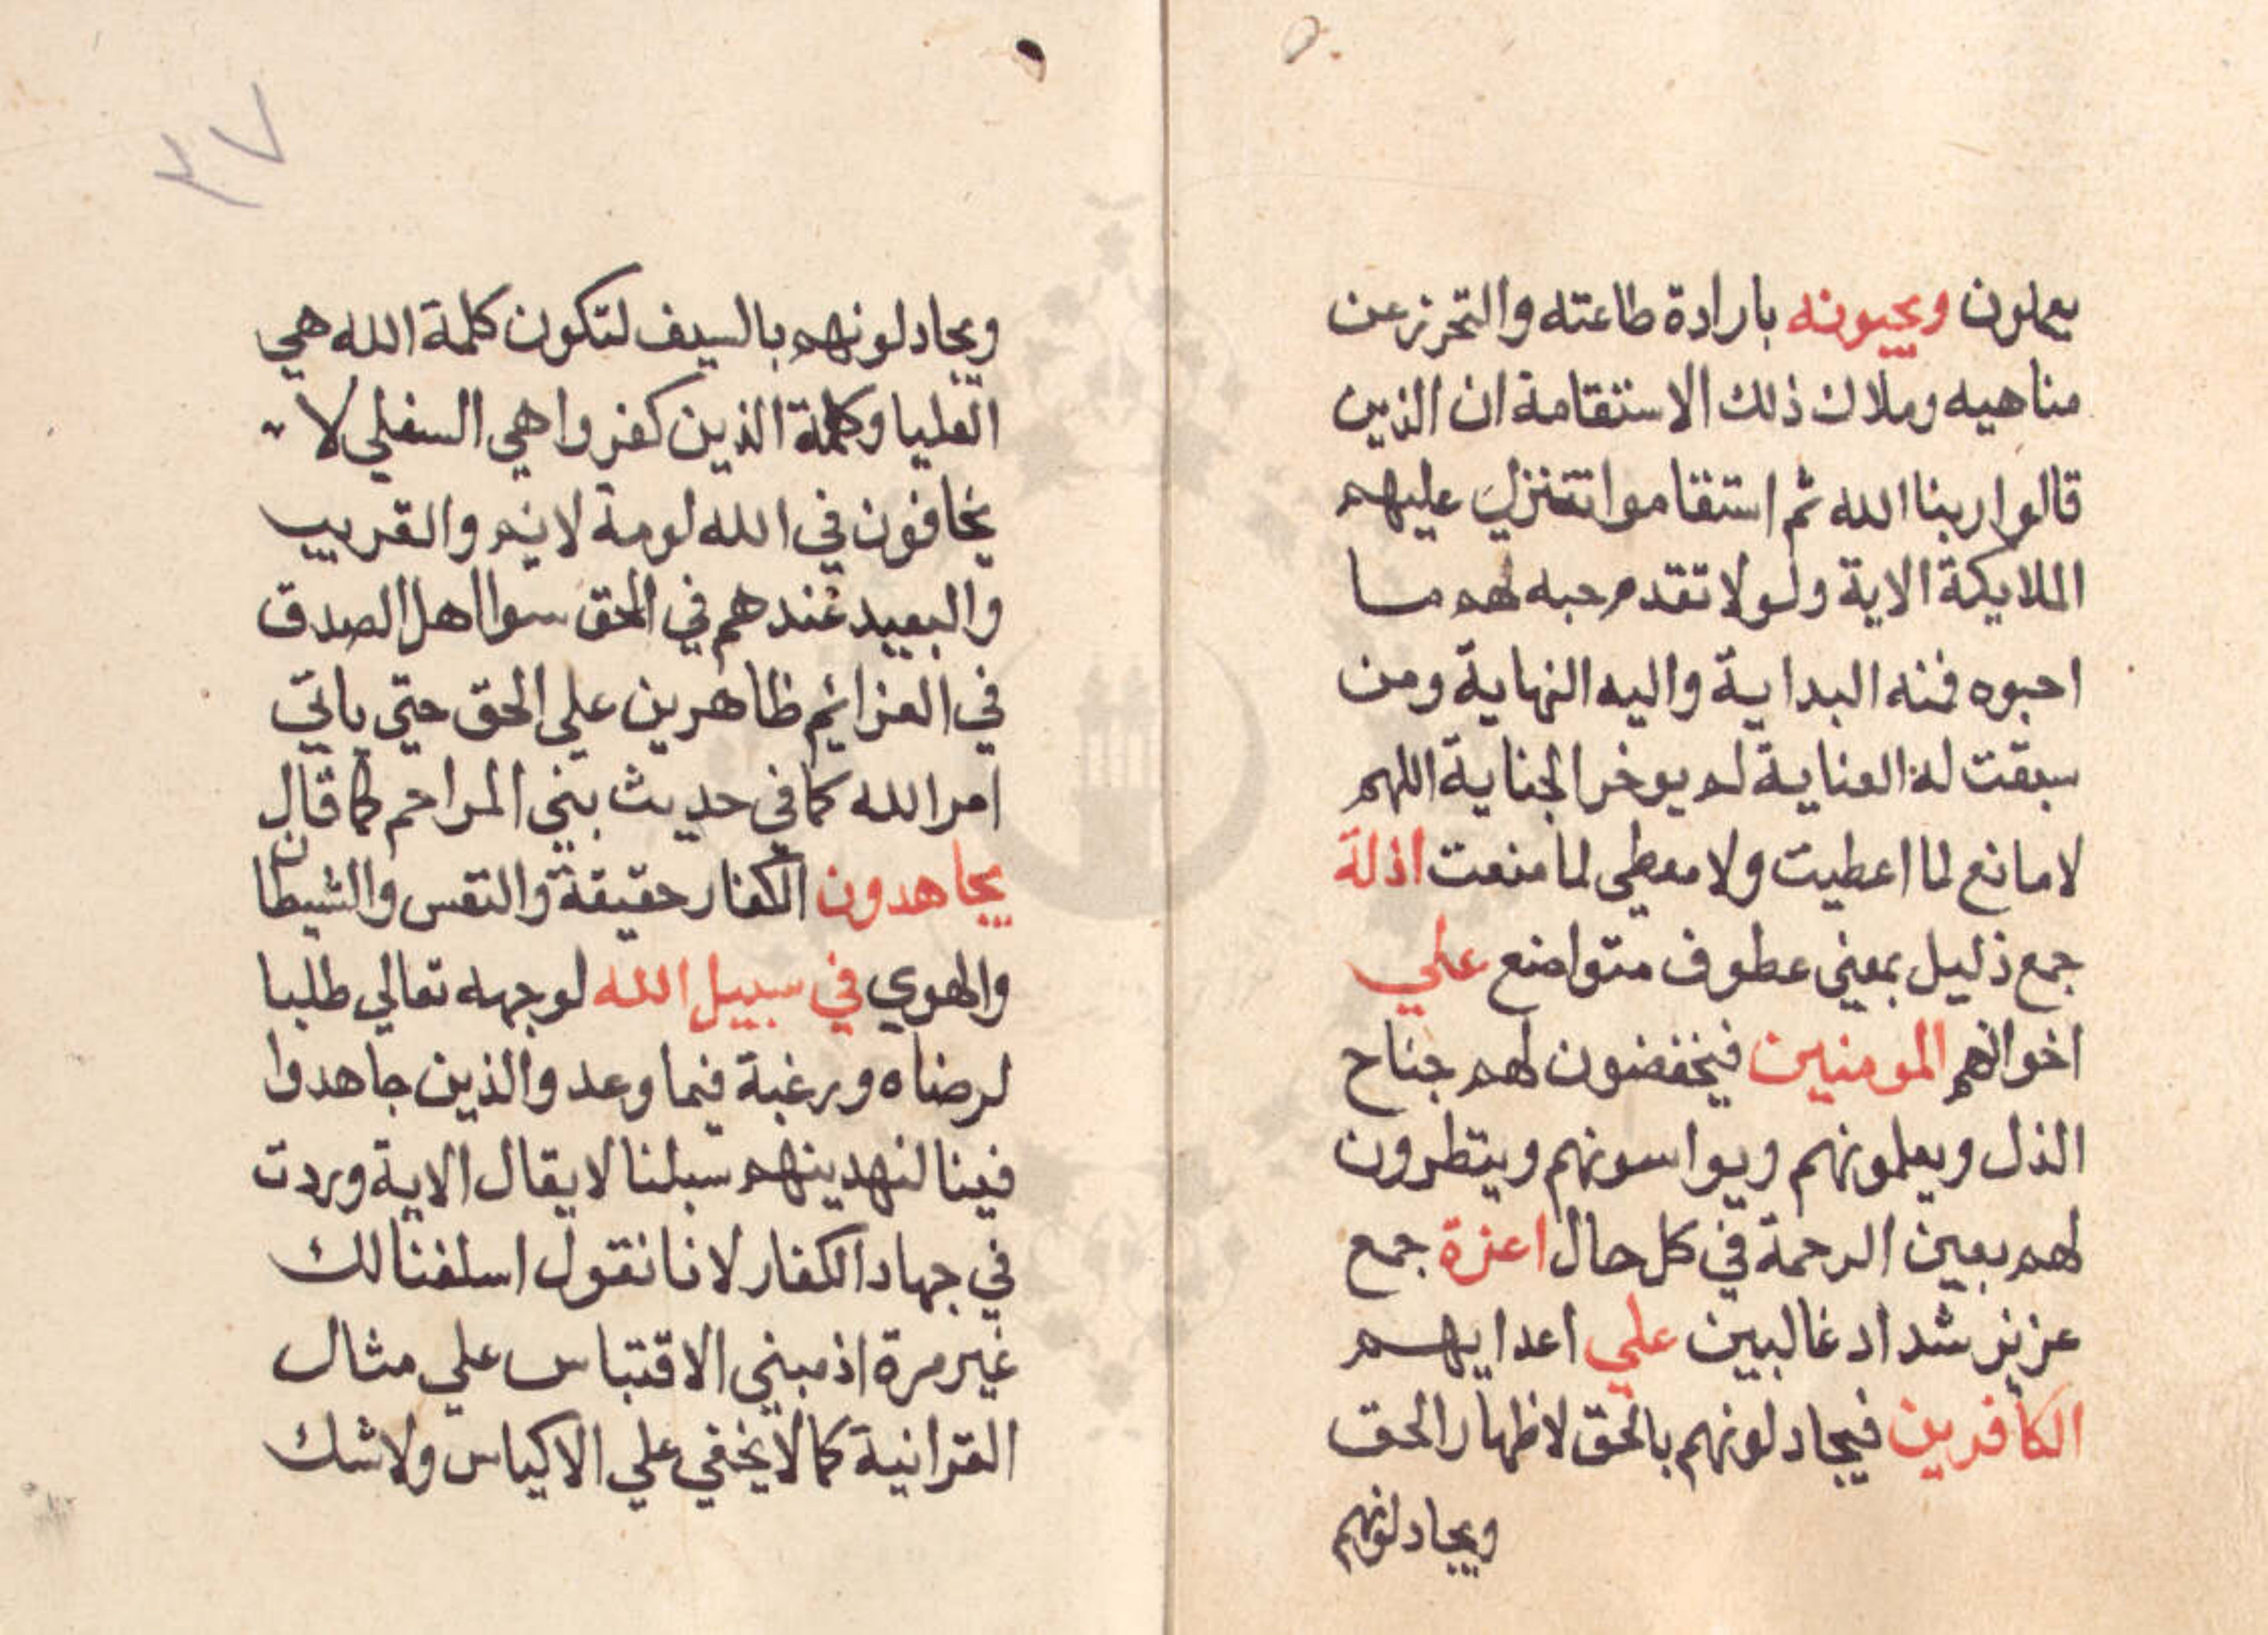 يعملون ويحبونه بارادة طاعته والتحرز عن
مناهيه وملاك ذلك الاستقامة ان الذين
قالوا ربنا الله ثم استقاموا تتنزل عليهم
الملايكة الاية ولولا تقدم حبه لهم ما
احبوه فمنه البداية واليه النهاية ومن
سبقت له العناية لم يوخر الجناية اللهم
لا مانع لما اعطيت ولا معطي لما منعت اذلة
جمع ذليل بمعني عطوف متواضع علي
اخوانهم المومنين فيخفضون لهم جناح
الذل ويعلمونهم ويواسونهم وينظرون
لهم بعين الرحمة في كل حال اعزة جمع
عزيز شداد غالبين علي اعدايهم
الكافرين فيجادلونهم بالحق لاظهار الحق
ويجادلونهم
٣٧
ويجادلونهم بالسيف لتكون كلمة الله هي
العليا وكلمة الذين كفروا هي السفلي لا
يخافون في الله لومة لايم والقريب
والبعيد عندهم في الحق سوا اهل الصدق
في العزائم ظاهرين علي الحق حتي ياتي
امر الله كما في حديث بني المراحم كما قال
يجاهدون الكفار حقيقة والنفس والشيطان
والهوي في سبيل الله لوجهه تعالي طلبا
لرضاه ورغبة فيما وعد والذين جاهدوا
فينا لنهدينهم سبلنا لا يقال الاية وردت
في جهاد الكفار لانا نقول اسلفنا لك
غير مرة اذ مبني الاقتباس علي مثال
القرانية كما لا يخفي علي الاكياس ولا شك